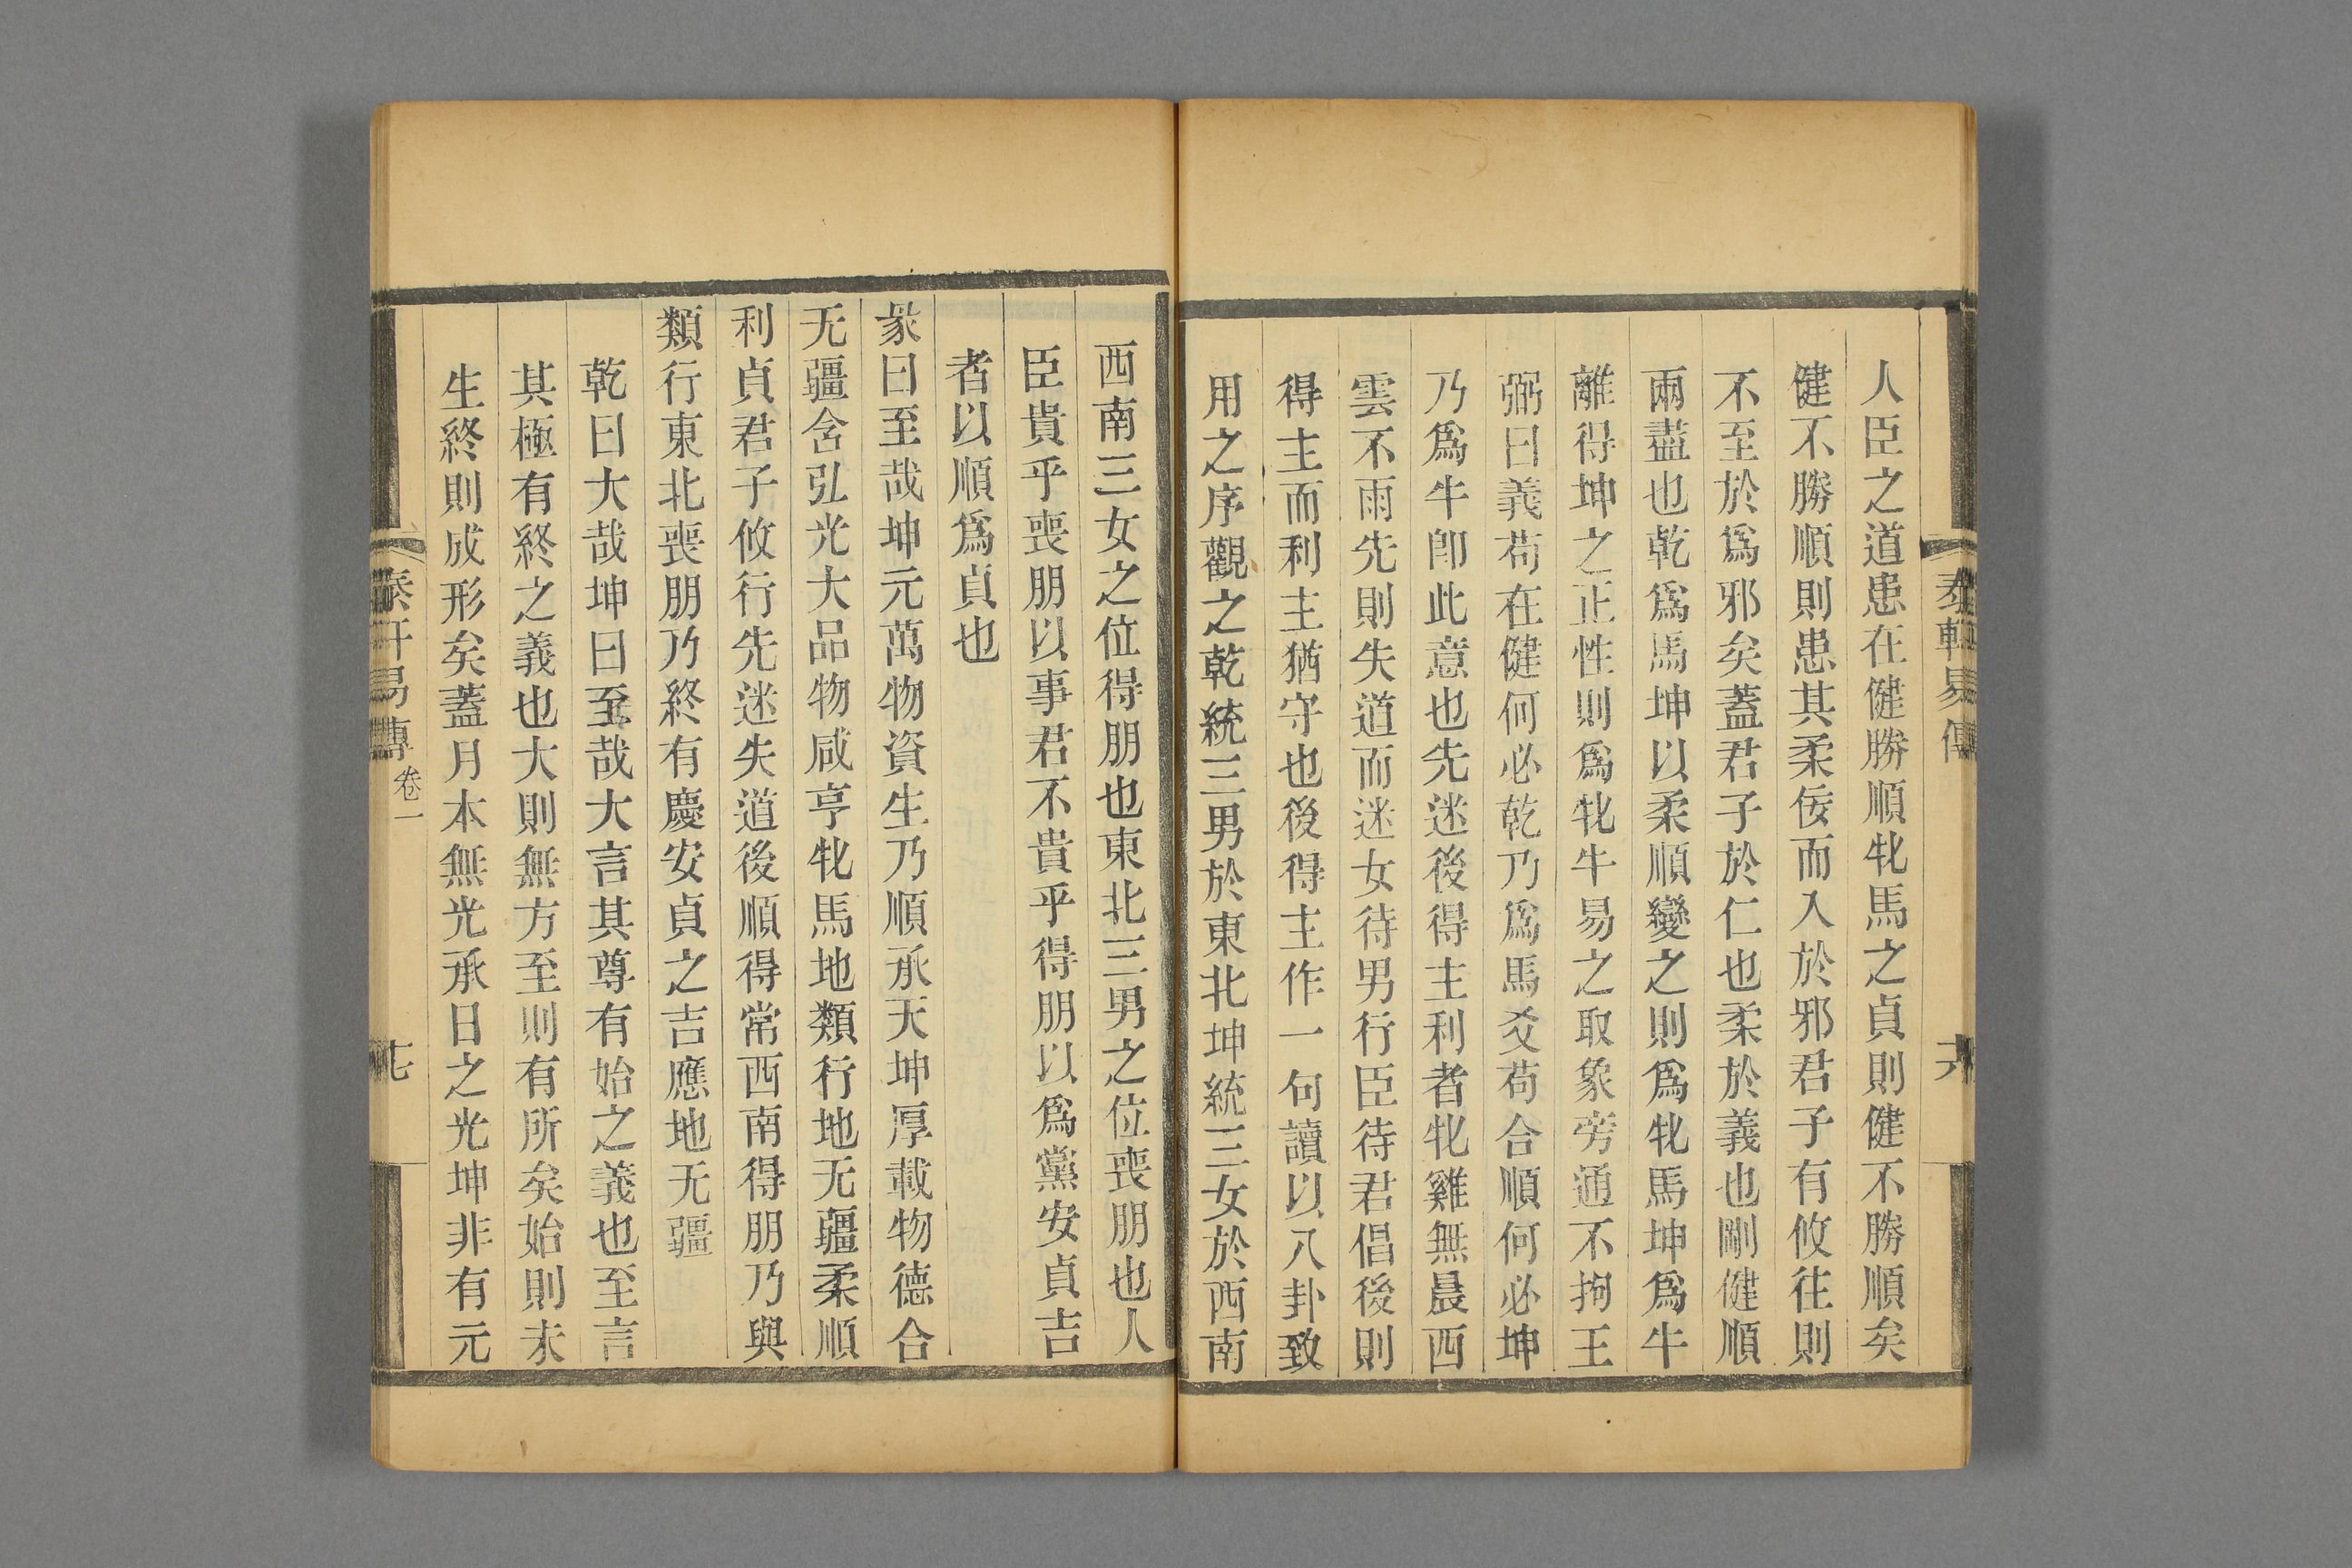 人臣之道患在健勝順牝馬之貞則健不勝順矣
健不勝順則患其柔佞而入於邪君子有攸往則
不至於爲邪矣蓋君子於仁也柔於義也剛健順
兩盡也乾爲馬坤以柔順變之則爲牝馬坤爲牛
離得坤之正性則爲牝牛易之取象旁通不拘王
弼曰義苟在健何必乾乃爲馬爻苟合順何必坤
乃爲牛卽此意也先迷後得主利者牝雞無晨西
雲不雨先則失道而迷女待男行臣待君倡後則
得主而利主猶守也後得主作一句讀以八卦致
用之序觀之乾統三男於東北坤統三女於西南
西南三女之位得朋也東北三男之位喪朋也人
臣貴乎喪朋以事君不貴乎得朋以爲黨安貞吉
者以順爲貞也
彖曰至哉坤元萬物資生乃順承天坤厚載物德合
无疆含弘光大品物咸亨牝馬地類行地无疆柔順
利貞君子攸行先迷失道後順得常西南得朋乃與
類行東北喪朋乃終有慶安貞之吉應地无疆
乾曰大哉坤曰至哉大言其尊有始之義也至言
其極有終之義也大則無方至則有所矣始則未
生終則成形矣蓋月本無光承日之光坤非有元
易傳
卷一